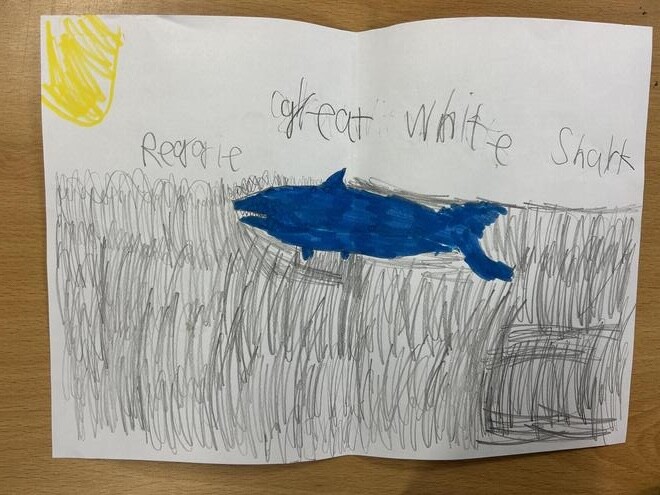 Great White Shark
Reggie